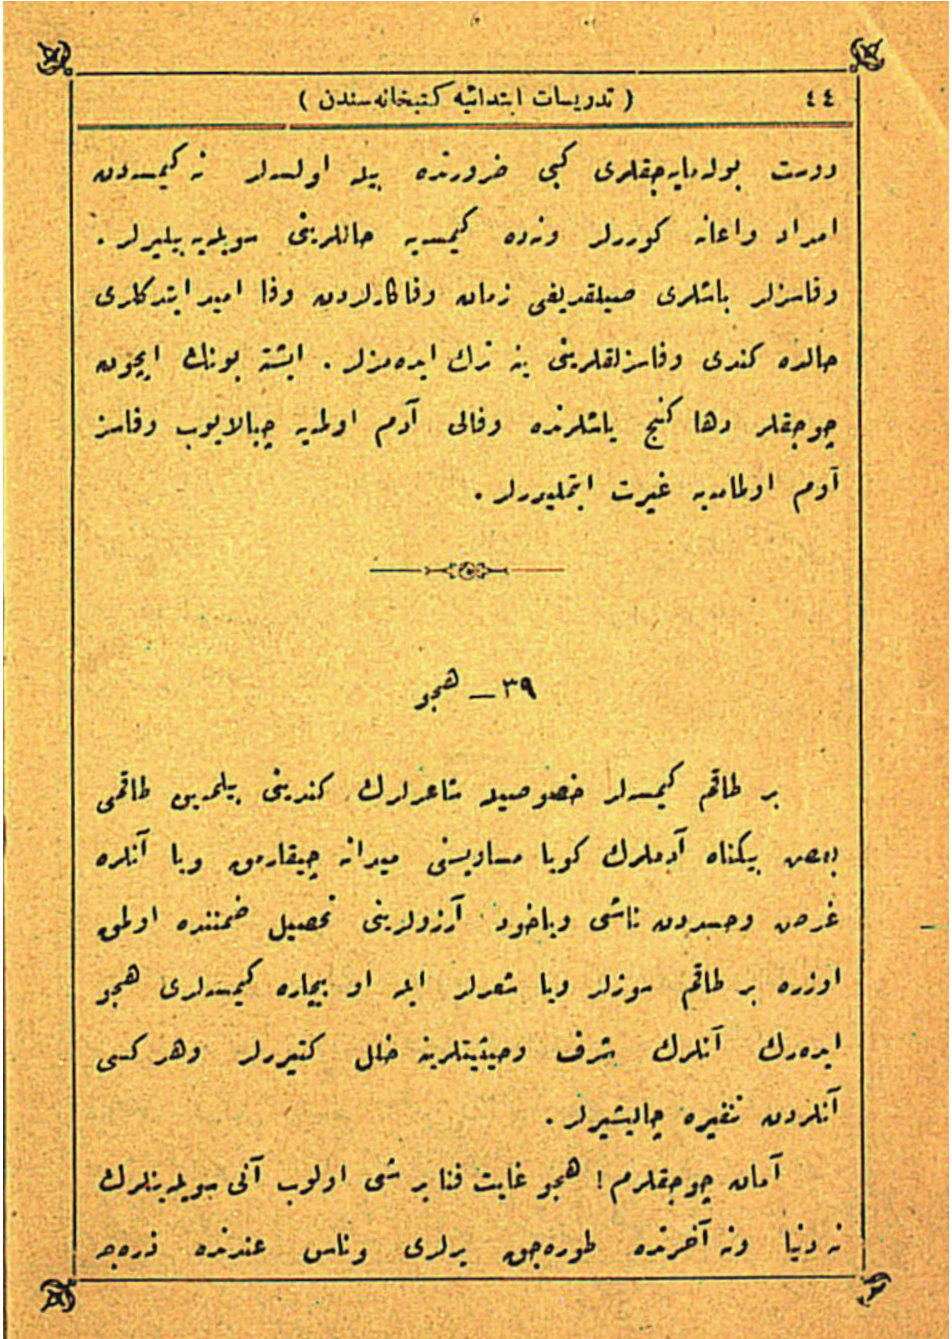 ٤٤ ( تدریسات ابتدائیه کتبخانه‌سندن )
دوست بوله‌میه‌جقلری کبی ضرورتده بیله اولسه‌لر نه کیمسه‌دن
امداد واعانه کوررلر ونه‌ده کیمسه‌یه حاللرینی سویلیه‌بیلیرلر .
وفاسزلر باشلری صیقلدیغی زمان وفاکارلردن وفا امید ایتدکلری
حالده کندی وفاسزلقلرینی ینه ترك ایده‌مزلر . ایشته بونك ایچون
چوجقلر دها کنج یاشلرنده وفالی آدم اولمه‌یه چبالایوب وفاسز
آدم اولمامه‌یه غیرت ایتملیدرلر .
٣٩ ــ هجو
بر طاقم کیمسه‌لر خصوصیله شاعرلرك کندینی بیلمه‌ین طاقمی
بعض بیکناه آدملرك کویا مساویسنی میدانه چیقارمق ویا آنلره
غرض وحسددن ناشی ویاخود آرزولرینی تحصیل ضمننده اولمق
اوزره بر طاقم سوزلر ویا شعرلر ایله او بیچاره کیمسه‌لری هجو
ایده‌رك آنلرك شرف وحیثیتلرینه خلل کتیررلر وهرکسی
آنلردن تنفیره چالیشیرلر .
آمان چوجقلرم ! هجو غایت فنا بر شی اولوب آنی سویله‌ینلرك
نه دنیا ونه آخرتده طوره‌جق یرلری وناس عندنده ذره‌جه